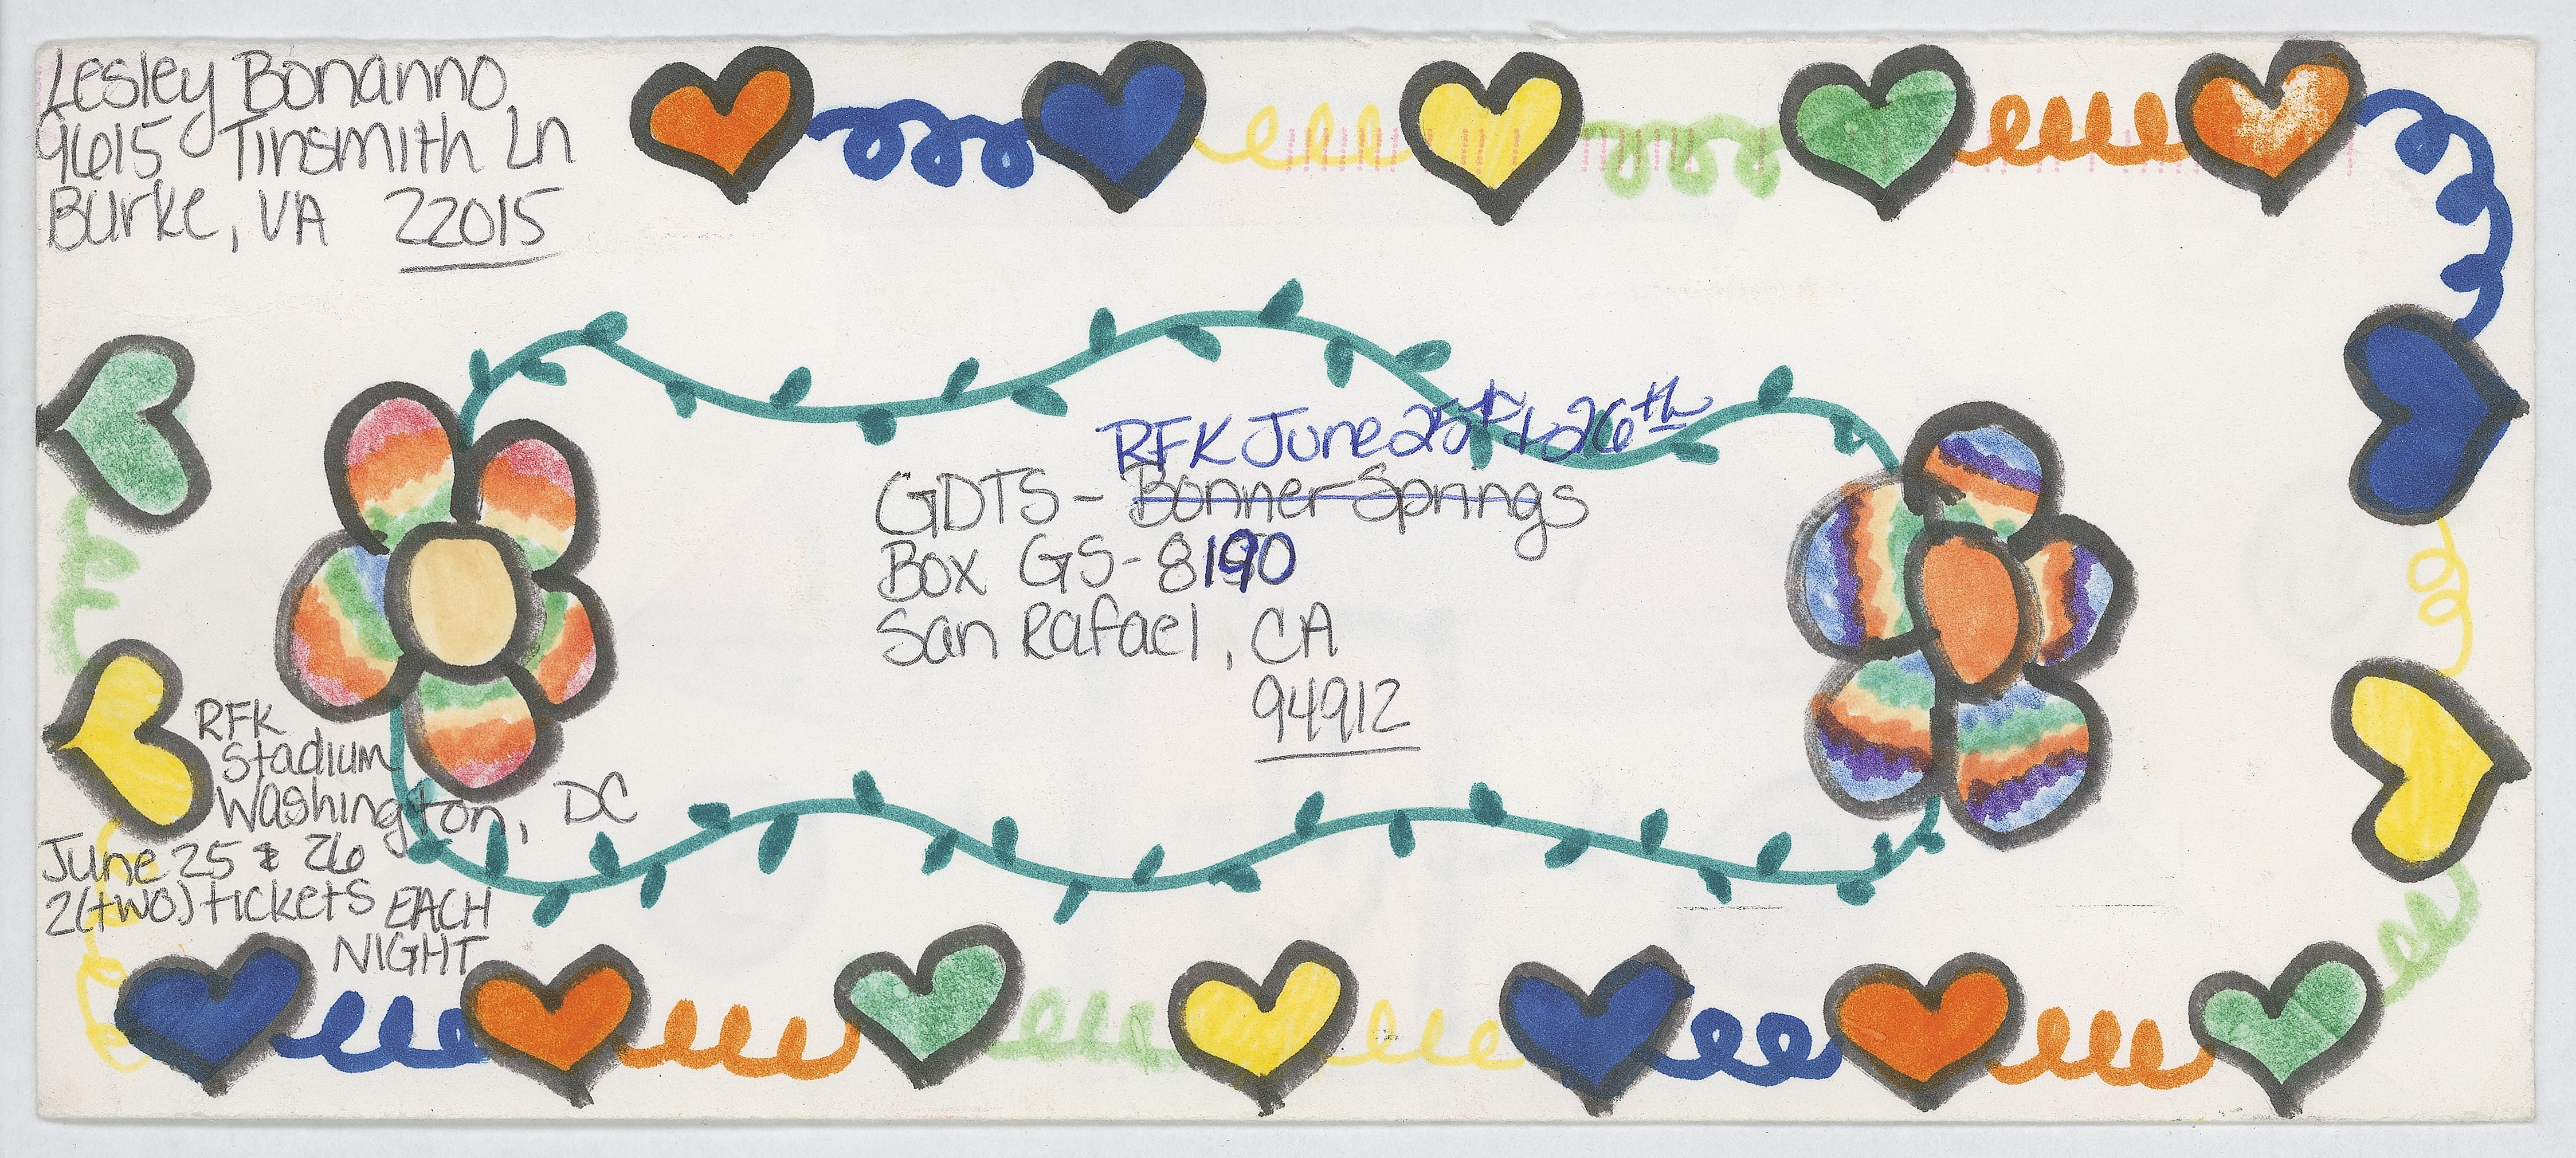 Lesley Bonanno
9615 Tinsmith Ln
Burke, VA 22015
RFK June 25th & 26th
GDTS - Bonner Springs
Box GS-8190
San Rafael, CA
94912
RFK
Stadium
Washington, DC
June 25 & 26
2(two) tickets EACH
NIGHT